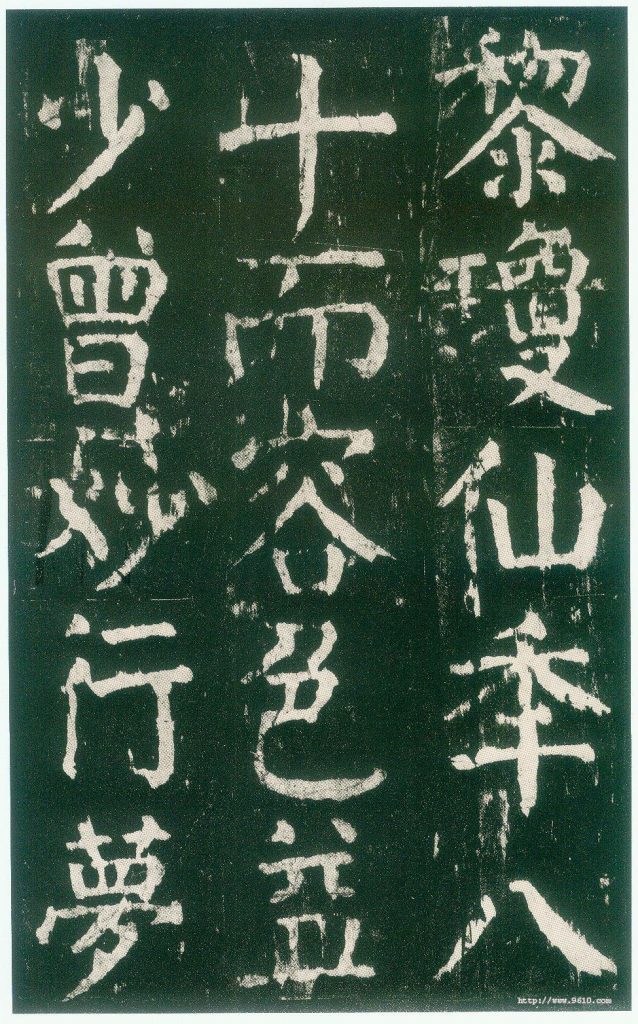 黎瓊仙年八
十而容色益
少曾妙行夢
http://www.9610.com